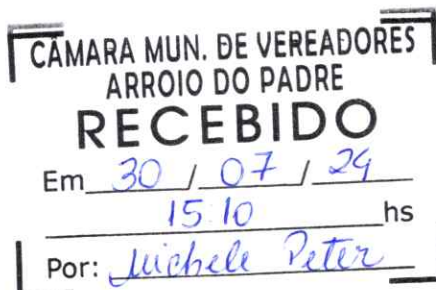 CÂMARA MUN. DE VEREADORES
ARROIO DO PADRE
RECEBIDO
Em 30 / 07 / 24
15:10 hs
Por: Michele Peter